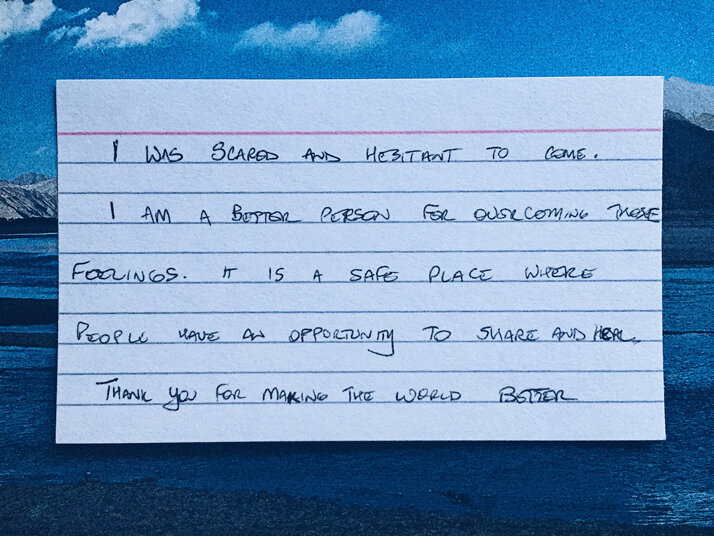 I WAS SCARED AND HEBITANT TO COME.
I AM A BETTER PERSON FOR OVERCOMING THOSE
FEELINGS. IT IS A SAFE PLACE WHERE
PEOPLE HAVE AN OPPORTUNITY TO SHARE AND HEAL.
THANK YOU FOR MAKING THE WORLD BETTER